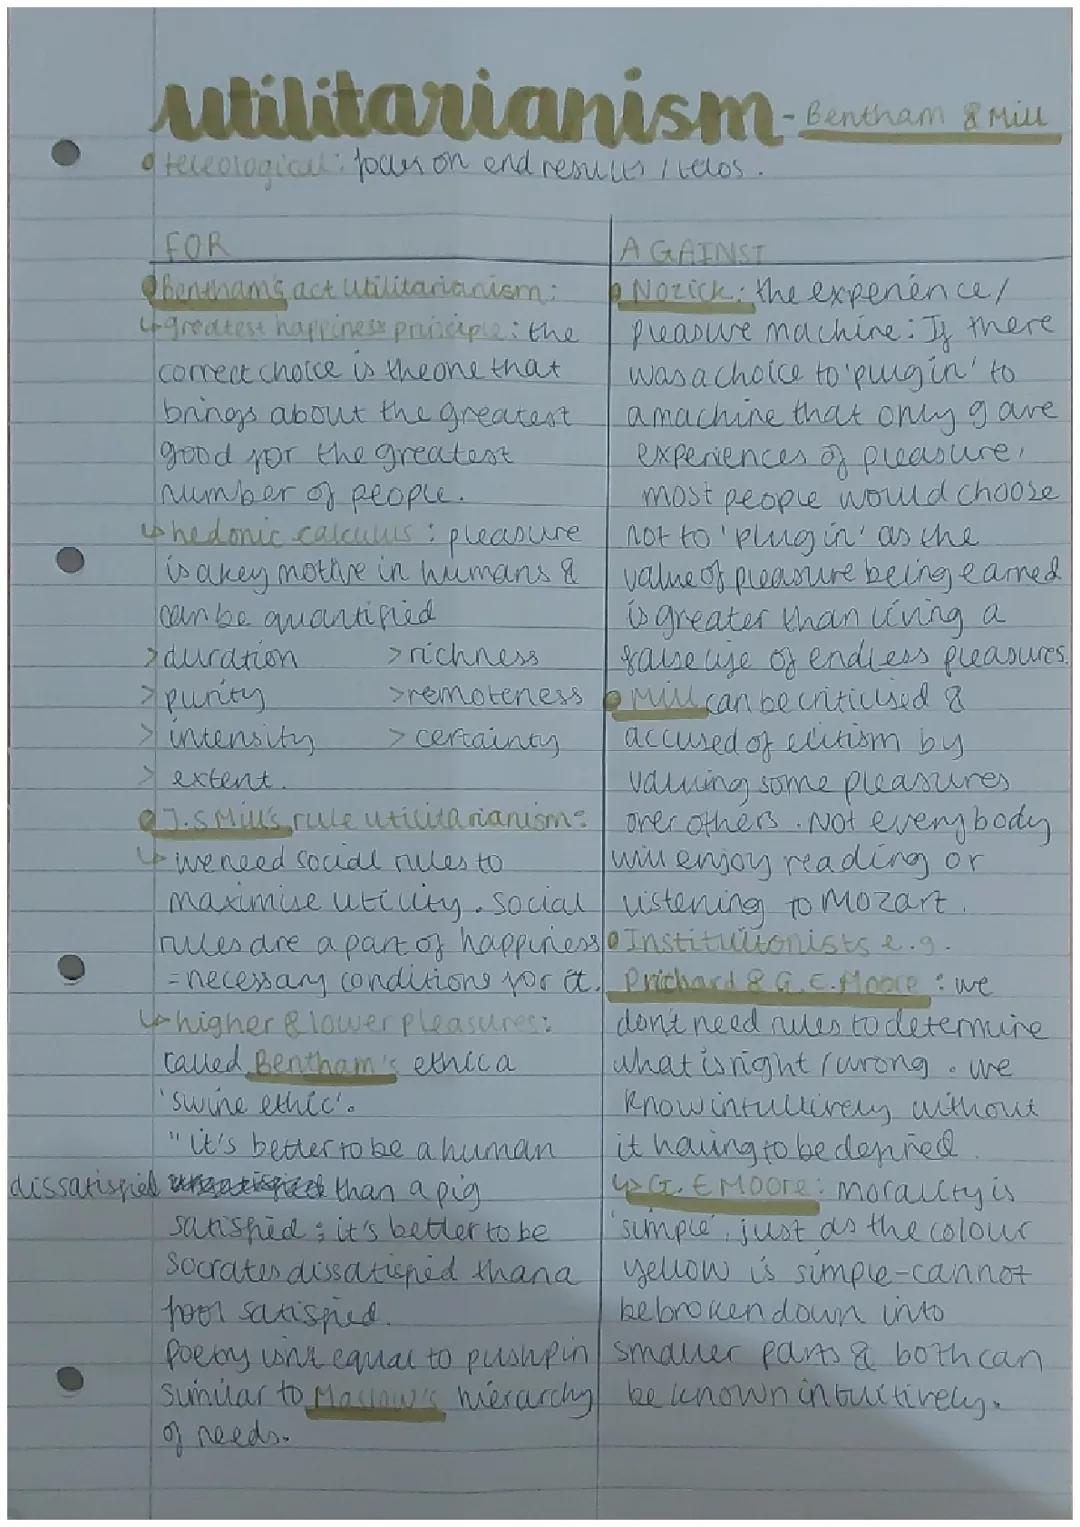 utilitarianism - Bentham & Mill
teleological: focus on end results / telos.
FOR
Bentham's act utilitarianism:
↳ greatest happiness principle: the
correct choice is the one that
brings about the greatest
good for the greatest
number of people.
↳ hedonic calculus: pleasure
is a key motive in humans &
can be quantified
> duration > richness
> purity > remoteness
> intensity > certainty
> extent.
J.S Mill's rule utilitarianism:
↳ we need social rules to
maximise utility. Social
rules are a part of happiness
= necessary conditions for it.
↳ higher & lower pleasures:
called Bentham's ethic a
'swine ethic'.
"it's better to be a human
dissatisfied than a pig
satisfied; it's better to be
Socrates dissatisfied than a
fool satisfied.
poetry isn't equal to pushpin
similar to Maslow's hierarchy
of needs.
AGAINST
Nozick: the experience/
pleasure machine: If there
was a choice to 'plug in' to
a machine that only gave
experiences of pleasure,
most people would choose
not to 'plug in' as the
value of pleasure being earned
is greater than living a
false life of endless pleasures.
Mill can be criticised &
accused of elitism by
valuing some pleasures
over others. Not everybody
will enjoy reading or
listening to Mozart.
Instituitonists e.g.
Prichard & G.E.Moore: we
don't need rules to determine
what is right / wrong. we
know intuitively without
it having to be defined.
↳ G.E Moore: morality is
'simple', just as the colour
yellow is simple - cannot
be broken down into
smaller parts & both can
be known intuitively.